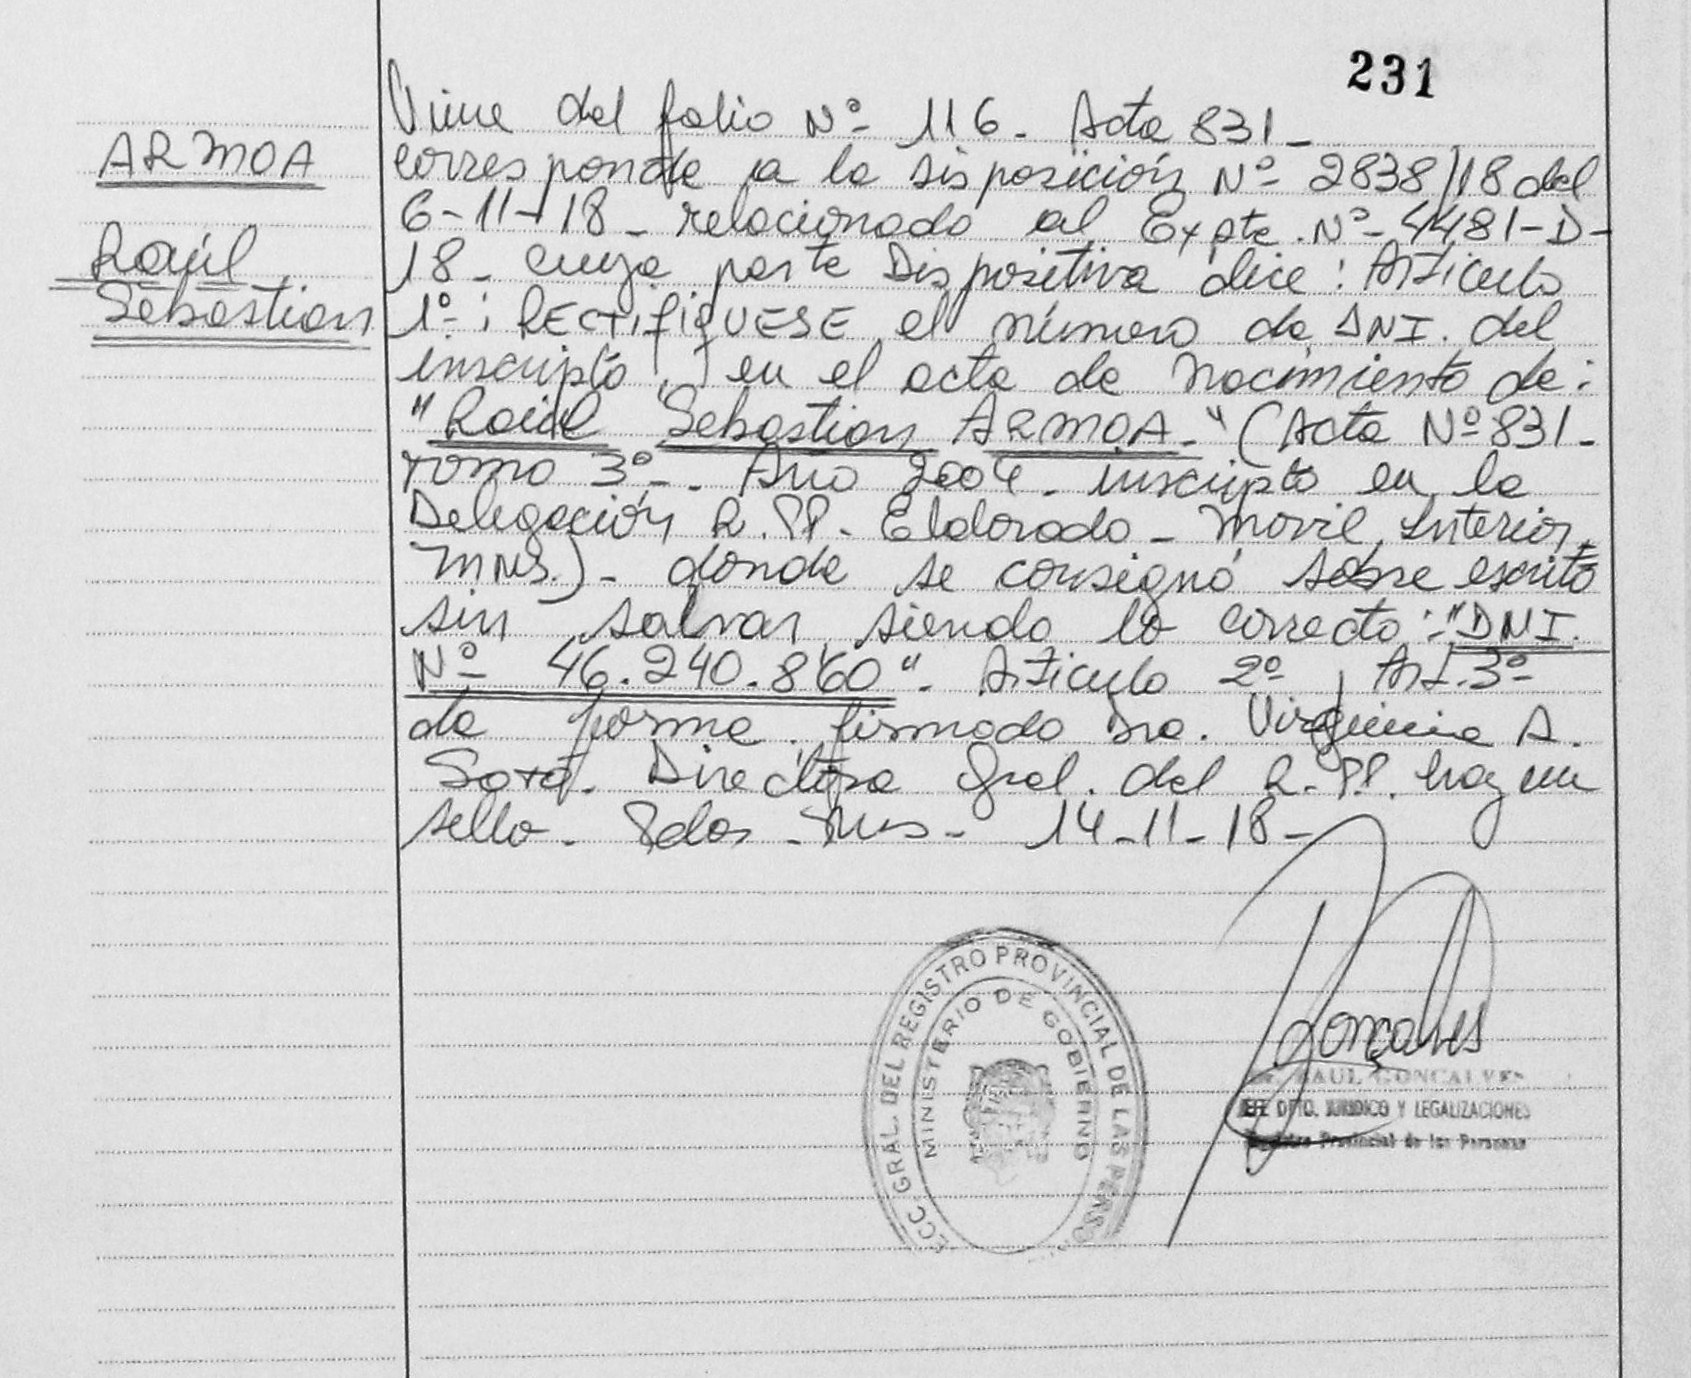 231
ARMOA
Raúl
Sebastian
Viene del folio Nº 116- Acta 831-
corresponde a la disposición Nº 2838/18 del
6-11-18- relacionado al Expte. Nº- 4481-D-
18- cuya parte Dispositiva dice: Articulo
1º: RECTIFIQUESE el número de DNI. del
inscripto, en el acta de Nacimiento de:
"Raúl Sebastian ARMOA-" (Acta Nº 831-
Tomo 3º- Año 2004- inscripto en la
Delegación R.PP- Eldorado- Movil Interior-
MNS.)- donde se consignó sobre escrito
sin salvar siendo lo correcto: "DNI.
Nº 46.240.860"- Articulo 2º, Art. 3º-
de forma. firmado Dra. Virginia A.
Directora Gral. del R.PP. hay un
sello- Pdas- Mns- 14-11-18-
Gonçalves
RAUL GONCALVES
JEFE DPTO. JURIDICO Y LEGALIZACIONES
Registro Provincial de las Personas
DIRECC. GRAL. DEL REGISTRO PROVINCIAL DE LAS PERSONAS
MINISTERIO DE GOBIERNO